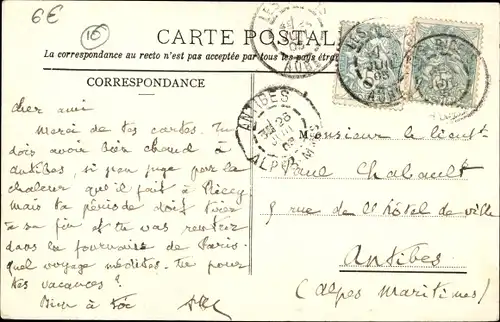 6E
15
CARTE POSTALE
La correspondance au recto n'est pas acceptée par tous les pays étra
CORRESPONDANCE
LES RICE
AUBE
ANTIBES
26
ALPES MARMES
cher ami
Merci de tes cartes. Tu
dois avoir bien chaud à
antibes, si j'en juge par la
chaleur qu'il fait à Riccy
mais ta période doit tirer
à sa fin et tu vas rentrer
dans la fournaise de Paris.
quel voyage médites-tu pour
tes vacances ?
Bien à toi
Monsieur le lieut^t
Paul Chabault
rue de l'hôtel de ville
Antibes
(Alpes Maritimes)